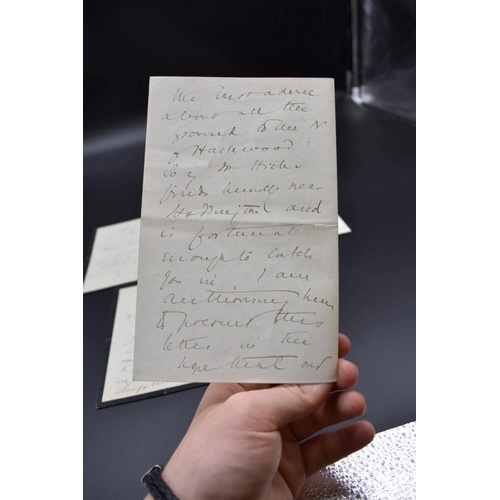 the best advice
about all the
ground to the N
of Hackwood.
So if Mr Hicks
finds himself near
Hoddington and
is fortunate
enough to catch
you in I am
authorising him
to present this
letter in the
hope that our